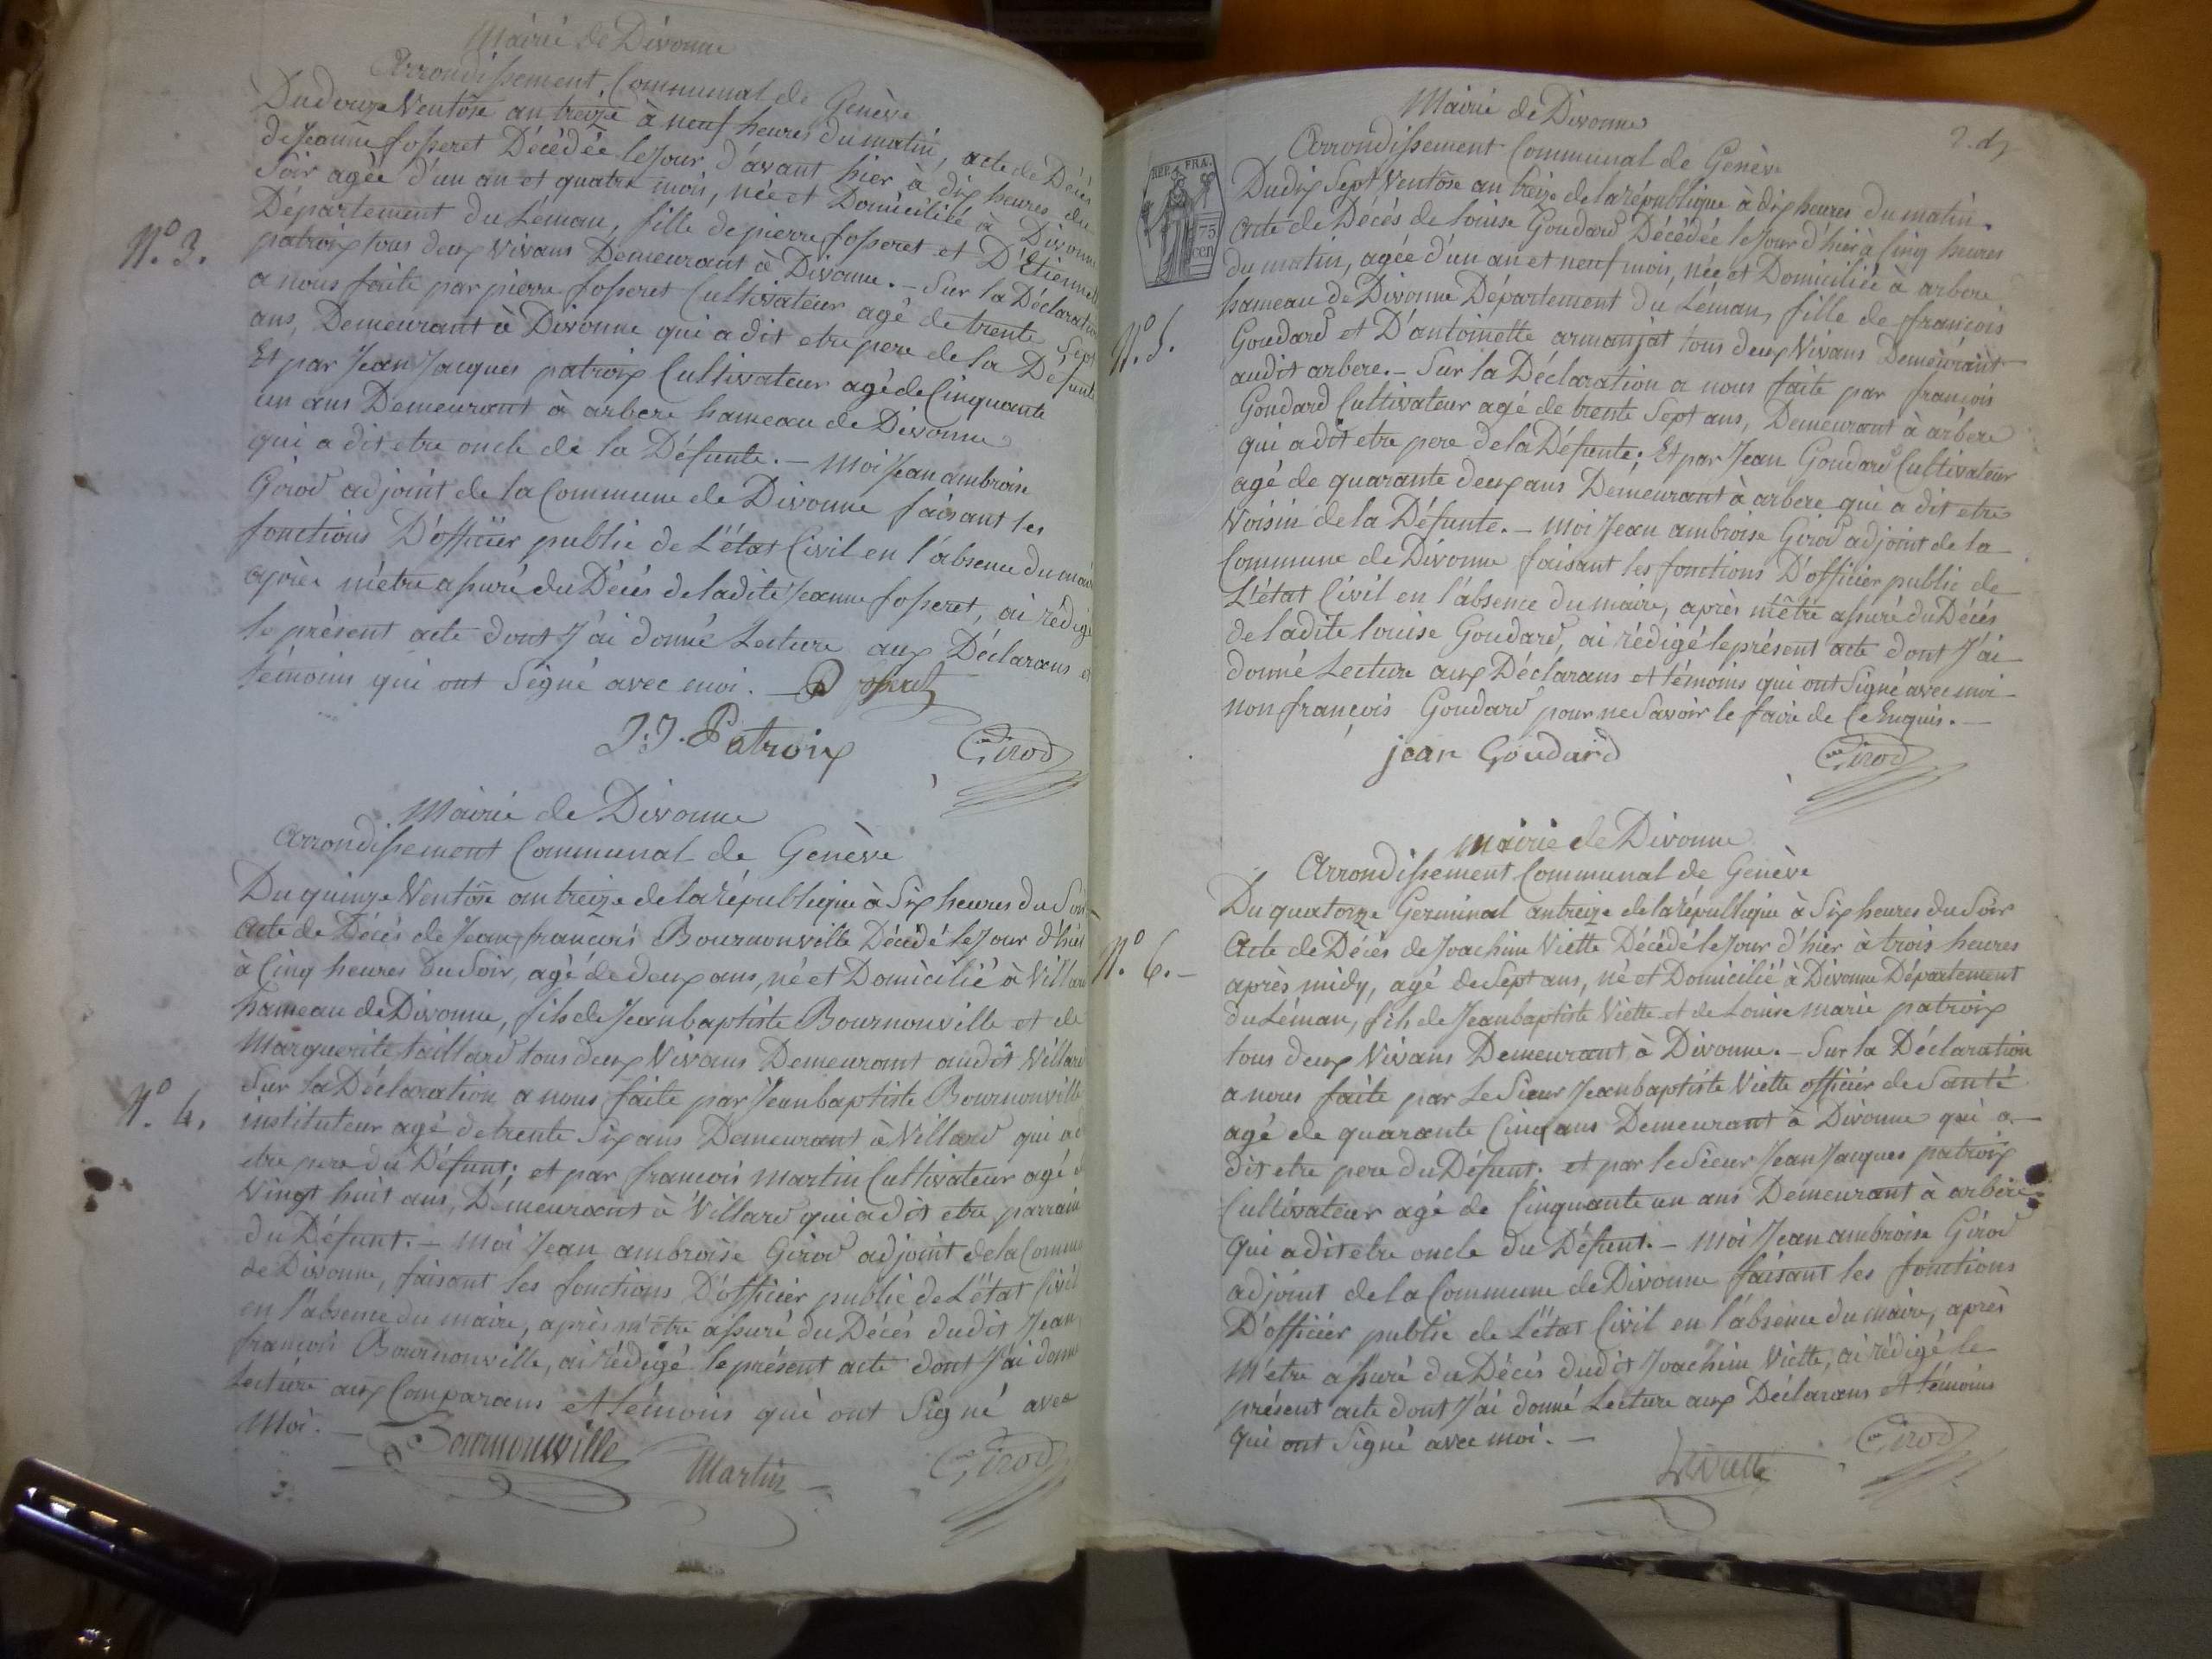 Mairie de Divonne
Arrondissement Communal de Genève
Du douze Ventôse an treize à neuf heures du matin, acte de Décès
de Jeanne fosseret Décédée le Jour d'avant hier à dix heures du
Soir agée d'un an et quatre mois, née et Domiciliée à Divonne
Département du Léman, fille de pierre fosseret et D'Etiennette
patroix tous deux Vivans Demeurant à Divonne. – Sur la Déclaration
N.o 3.
a nous faite par pierre fosseret Cultivateur agé de trente Sept
ans, Demeurant à Divonne qui a dit etre pere de la Défunte
Et par Jean Jacques patroix Cultivateur agé de Cinquante
un ans Demeurant à arbere hameau de Divonne
qui a dit etre oncle de la Défunte. – Moi Jean ambroise
Girod adjoint de la Commune de Divonne faisant les
fonctions D'officier public de L'état Civil en l'absence du maire
après m'etre assuré du Décès de ladite Jeanne fosseret, ai rédigé
le présent acte dont J'ai donné Lecture aux Déclarans et
témoins qui ont Signé avec moi. – P fosseret
J.J. Patroix Girod
Mairie de Divonne
Arrondissement Communal de Genève
Du quinze Ventôse an treize de la république à Six heures du Soir
Acte de Décès de Jean françois Bournonville Décédé le Jour d'hier
à Cinq heures du Soir, agé de deux ans, né et Domicilié à Villard
hameau de Divonne, fils de Jean baptiste Bournonville et de
Marguerite taillard tous deux Vivans Demeurant audit Villard
Sur la Déclaration a nous faite par Jean baptiste Bournonville
N.o 4.
instituteur agé de trente Six ans Demeurant à Villard qui a dit
etre pere du Défunt; et par françois Martin Cultivateur agé de
Vingt huit ans, Demeurant à Villard qui a dit etre parrain
du Défunt. – Moi Jean ambroise Girod adjoint de la Commune
de Divonne, faisant les fonctions D'officier public de L'état Civil
en l'absence du maire, après m'être assuré du Décès dudit Jean
françois Bournonville, ai rédigé le présent acte dont J'ai donné
Lecture aux Comparans et témoins qui ont Signé avec
Moi. –
Bournonville Martin Girod
Mairie de Divonne
Arrondissement Communal de Genève
REP. FRA.
75 cen
Du dix Sept Ventôse an treize de la république à dix heures du matin.
Acte de Décès de louise Goudard Décédée le Jour d'hier à Cinq heures
du matin, agée d'un an et neuf mois, née et Domiciliée à arbere
hameau de Divonne Département du Léman, fille de françois
N.o 5.
Goudard et D'antoinette armanjat tous deux Vivans Demeurant
audit arbere. – Sur la Déclaration a nous faite par françois
Goudard Cultivateur agé de trente Sept ans, Demeurant à arbere
qui a dit etre pere de la Défunte; Et par Jean Goudard Cultivateur
agé de quarante deux ans Demeurant à arbere qui a dit etre
Voisin de la Défunte. – Moi Jean ambroise Girod adjoint de la
Commune de Divonne faisant les fonctions D'officier public de
L'état Civil en l'absence du maire, après m'être assuré du Décès
de ladite louise Goudard, ai rédigé le présent acte dont J'ai
donné Lecture aux Déclarans et témoins qui ont Signé avec moi
non françois Goudard pour ne Savoir le faire de Ce Enquis. –
jean Goudard Girod
Mairie de Divonne
Arrondissement Communal de Genève
Du quatorze Germinal an treize de la république à Six heures du Soir
Acte de Décès de Joachim Viette Décédé le Jour d'hier à trois heures
N.o 6. –
après midy, agé de Sept ans, né et Domicilié à Divonne Département
du Léman, fils de Jean baptiste Viette et de Louise Marie patroix
tous deux Vivans Demeurant à Divonne. – Sur la Déclaration
a nous faite par Le Sieur Jean baptiste Viette officier de Santé
agé de quarante Cinq ans Demeurant à Divonne qui a
dit etre pere du Défunt. et par le Sieur Jean Jacques patroix
Cultivateur agé de Cinquante un ans Demeurant à arbere
qui a dit etre oncle du Défunt. – Moi Jean ambroise Girod
adjoint de la Commune de Divonne faisant les fonctions
D'officier public de L'état Civil en l'absence du maire, après
M'etre assuré du Décès dudit Joachim Viette, ai rédigé le
présent acte dont J'ai donné Lecture aux Déclarans et témoins
Qui ont Signé avec moi. –
Viette Girod